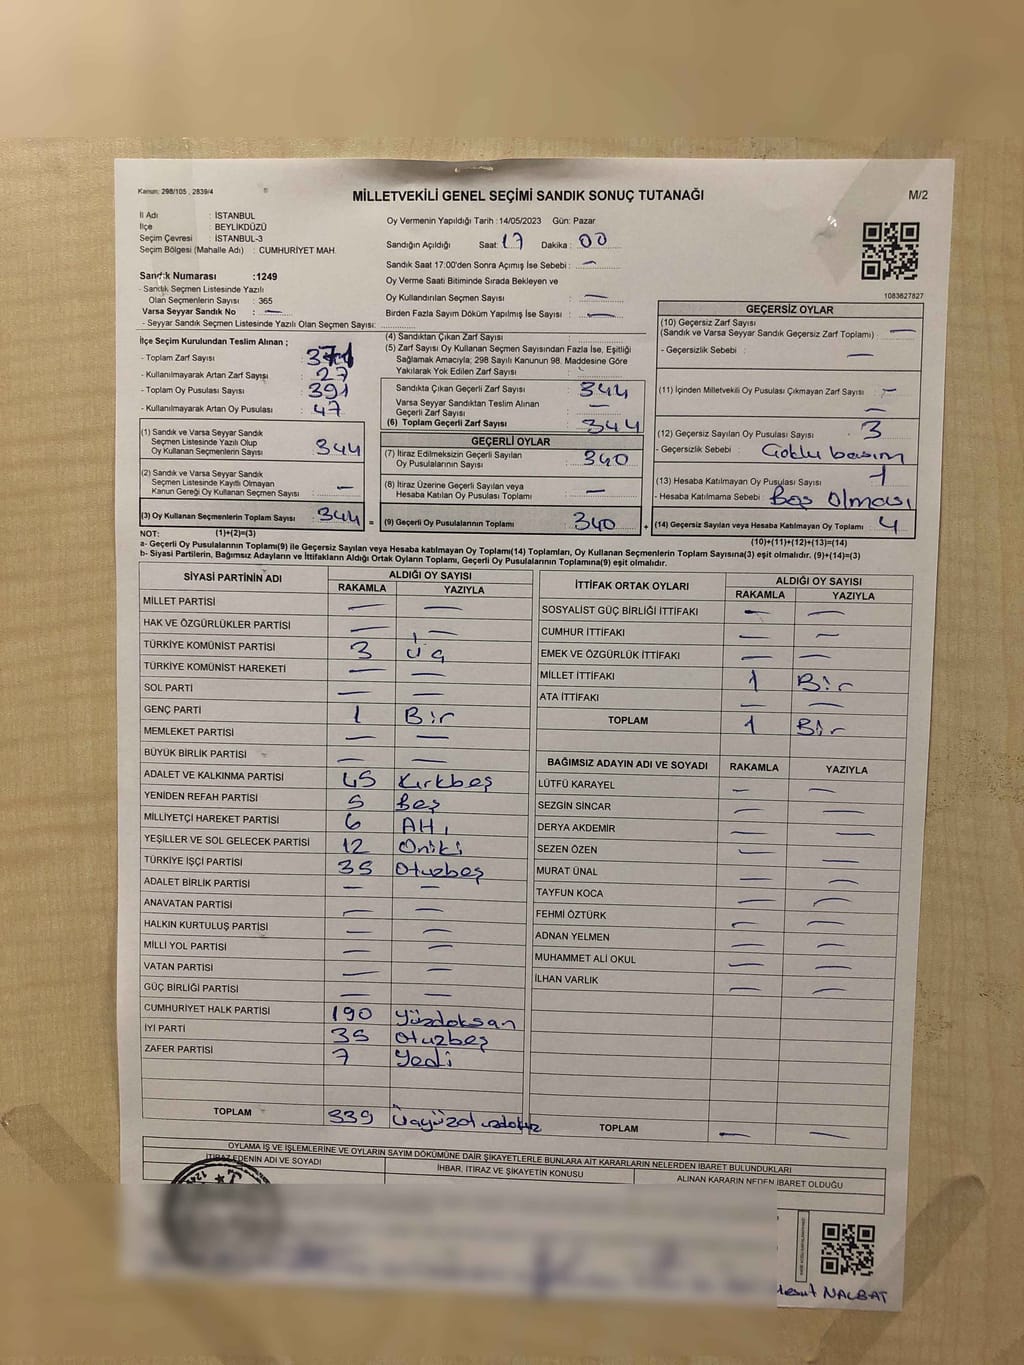 Kanun: 298/105 , 2839/4
MİLLETVEKİLİ GENEL SEÇİMİ SANDIK SONUÇ TUTANAĞI
M/2
İl Adı : İSTANBUL
İlçe : BEYLİKDÜZÜ
Seçim Çevresi : İSTANBUL-3
Seçim Bölgesi (Mahalle Adı) : CUMHURİYET MAH.
Sandık Numarası : 1249
- Sandık Seçmen Listesinde Yazılı
Olan Seçmenlerin Sayısı : 365
Varsa Seyyar Sandık No : —
- Seyyar Sandık Seçmen Listesinde Yazılı Olan Seçmen Sayısı:
Oy Vermenin Yapıldığı Tarih : 14/05/2023 Gün: Pazar
Sandığın Açıldığı Saat: 17 Dakika : 00
Sandık Saat 17:00'den Sonra Açımış İse Sebebi : —
Oy Verme Saati Bitiminde Sırada Bekleyen ve
Oy Kullandırılan Seçmen Sayısı : —
Birden Fazla Sayım Döküm Yapılmış İse Sayısı : —
1083627827
İlçe Seçim Kurulundan Teslim Alınan ;
- Toplam Zarf Sayısı :
- Kullanılmayarak Artan Zarf Sayısı : 27
- Toplam Oy Pusulası Sayısı : 391
- Kullanılmayarak Artan Oy Pusulası : 47
(1) Sandık ve Varsa Seyyar Sandık
Seçmen Listesinde Yazılı Olup
Oy Kullanan Seçmenlerin Sayısı : 344
(2) Sandık ve Varsa Seyyar Sandık
Seçmen Listesinde Kayıtlı Olmayan
Kanun Gereği Oy Kullanan Seçmen Sayısı : —
(3) Oy Kullanan Seçmenlerin Toplam Sayısı : 344
(4) Sandıktan Çıkan Zarf Sayısı :
(5) Zarf Sayısı Oy Kullanan Seçmen Sayısından Fazla İse, Eşitliği
Sağlamak Amacıyla; 298 Sayılı Kanunun 98. Maddesine Göre
Yakılarak Yok Edilen Zarf Sayısı :
Sandıkta Çıkan Geçerli Zarf Sayısı : 344
Varsa Seyyar Sandıktan Teslim Alınan
Geçerli Zarf Sayısı : —
(6) Toplam Geçerli Zarf Sayısı : 344
GEÇERLİ OYLAR
(7) İtiraz Edilmeksizin Geçerli Sayılan
Oy Pusulalarının Sayısı : 340
(8) İtiraz Üzerine Geçerli Sayılan veya
Hesaba Katılan Oy Pusulası Toplamı : —
= (9) Geçerli Oy Pusulalarının Toplamı : 340 +
GEÇERSİZ OYLAR
(10) Geçersiz Zarf Sayısı
(Sandık ve Varsa Seyyar Sandık Geçersiz Zarf Toplamı) : —
- Geçersizlik Sebebi : —
(11) İçinden Milletvekili Oy Pusulası Çıkmayan Zarf Sayısı : —
—
(12) Geçersiz Sayılan Oy Pusulası Sayısı : 3
- Geçersizlik Sebebi : Çoklu basım
(13) Hesaba Katılmayan Oy Pusulası Sayısı : 1
- Hesaba Katılmama Sebebi : Boş Olması
(14) Geçersiz Sayılan veya Hesaba Katılmayan Oy Toplamı : 4
NOT: (1)+(2)=(3) (10)+(11)+(12)+(13)=(14)
a- Geçerli Oy Pusulalarının Toplamı(9) ile Geçersiz Sayılan veya Hesaba katılmayan Oy Toplam(14) Toplamları, Oy Kullanan Seçmenlerin Toplam Sayısına(3) eşit olmalıdır. (9)+(14)=(3)
b- Siyasi Partilerin, Bağımsız Adayların ve İttifakların Aldığı Ortak Oyların Toplamı, Geçerli Oy Pusulalarının Toplamına(9) eşit olmalıdır.
SİYASİ PARTİNİN ADI ALDIĞI OY SAYISI
RAKAMLA YAZIYLA
MİLLET PARTİSİ — —
HAK VE ÖZGÜRLÜKLER PARTİSİ — —
TÜRKİYE KOMÜNİST PARTİSİ 3 Üç
TÜRKİYE KOMÜNİST HAREKETİ — —
SOL PARTİ — —
GENÇ PARTİ 1 Bir
MEMLEKET PARTİSİ — —
BÜYÜK BİRLİK PARTİSİ — —
ADALET VE KALKINMA PARTİSİ 45 Kırkbeş
YENİDEN REFAH PARTİSİ 5 Beş
MİLLİYETÇİ HAREKET PARTİSİ 6 Altı
YEŞİLLER VE SOL GELECEK PARTİSİ 12 Oniki
TÜRKİYE İŞÇİ PARTİSİ 35 Otuzbeş
ADALET BİRLİK PARTİSİ — —
ANAVATAN PARTİSİ — —
HALKIN KURTULUŞ PARTİSİ — —
MİLLİ YOL PARTİSİ — —
VATAN PARTİSİ — —
GÜÇ BİRLİĞİ PARTİSİ — —
CUMHURİYET HALK PARTİSİ 190 Yüzdoksan
İYİ PARTİ 35 Otuzbeş
ZAFER PARTİSİ 7 Yedi
TOPLAM 339 Üçyüzotuzdokuz
İTTİFAK ORTAK OYLARI ALDIĞI OY SAYISI
RAKAMLA YAZIYLA
SOSYALİST GÜÇ BİRLİĞİ İTTİFAKI — —
CUMHUR İTTİFAKI — —
EMEK VE ÖZGÜRLÜK İTTİFAKI — —
MİLLET İTTİFAKI 1 Bir
ATA İTTİFAKI — —
TOPLAM 1 Bir
BAĞIMSIZ ADAYIN ADI VE SOYADI RAKAMLA YAZIYLA
LÜTFÜ KARAYEL — —
SEZGİN SİNCAR — —
DERYA AKDEMİR — —
SEZEN ÖZEN — —
MURAT ÜNAL — —
TAYFUN KOCA — —
FEHMİ ÖZTÜRK — —
ADNAN YELMEN — —
MUHAMMET ALİ OKUL — —
İLHAN VARLIK — —
TOPLAM — —
OYLAMA İŞ VE İŞLEMLERİNE VE OYLARIN SAYIM DÖKÜMÜNE DAİR ŞİKAYETLERLE BUNLARA AİT KARARLARIN NELERDEN İBARET BULUNDUKLARI
İTİRAZ EDENİN ADI VE SOYADI İHBAR, İTİRAZ VE ŞİKAYETİN KONUSU ALINAN KARARIN NEDEN İBARET OLDUĞU
NALBAT